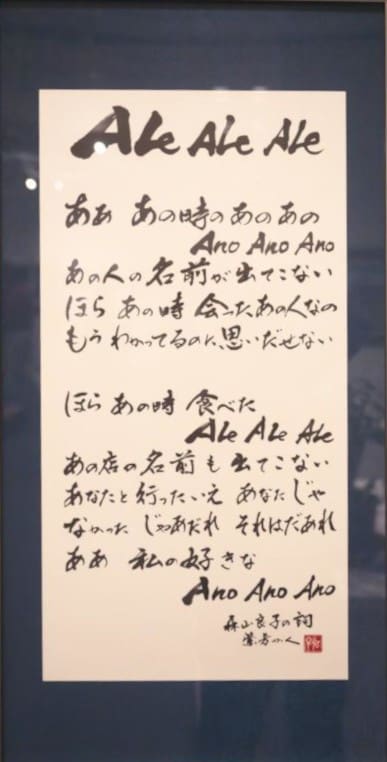 Ale Ale Ale
あぁ あの時のあのあの
Ano Ano Ano
あの人の名前が出てこない
ほら あの時 会ったあの人なの
もうわかってるのに思いだせない
ほら あの時 食べた
Ale Ale Ale
あの店の名前も出てこない
あなたと行ったいえ あなたじゃ
なかった じゃあだれ それはだあれ
ああ 私の好きな
Ano Ano Ano
森山良子の詞